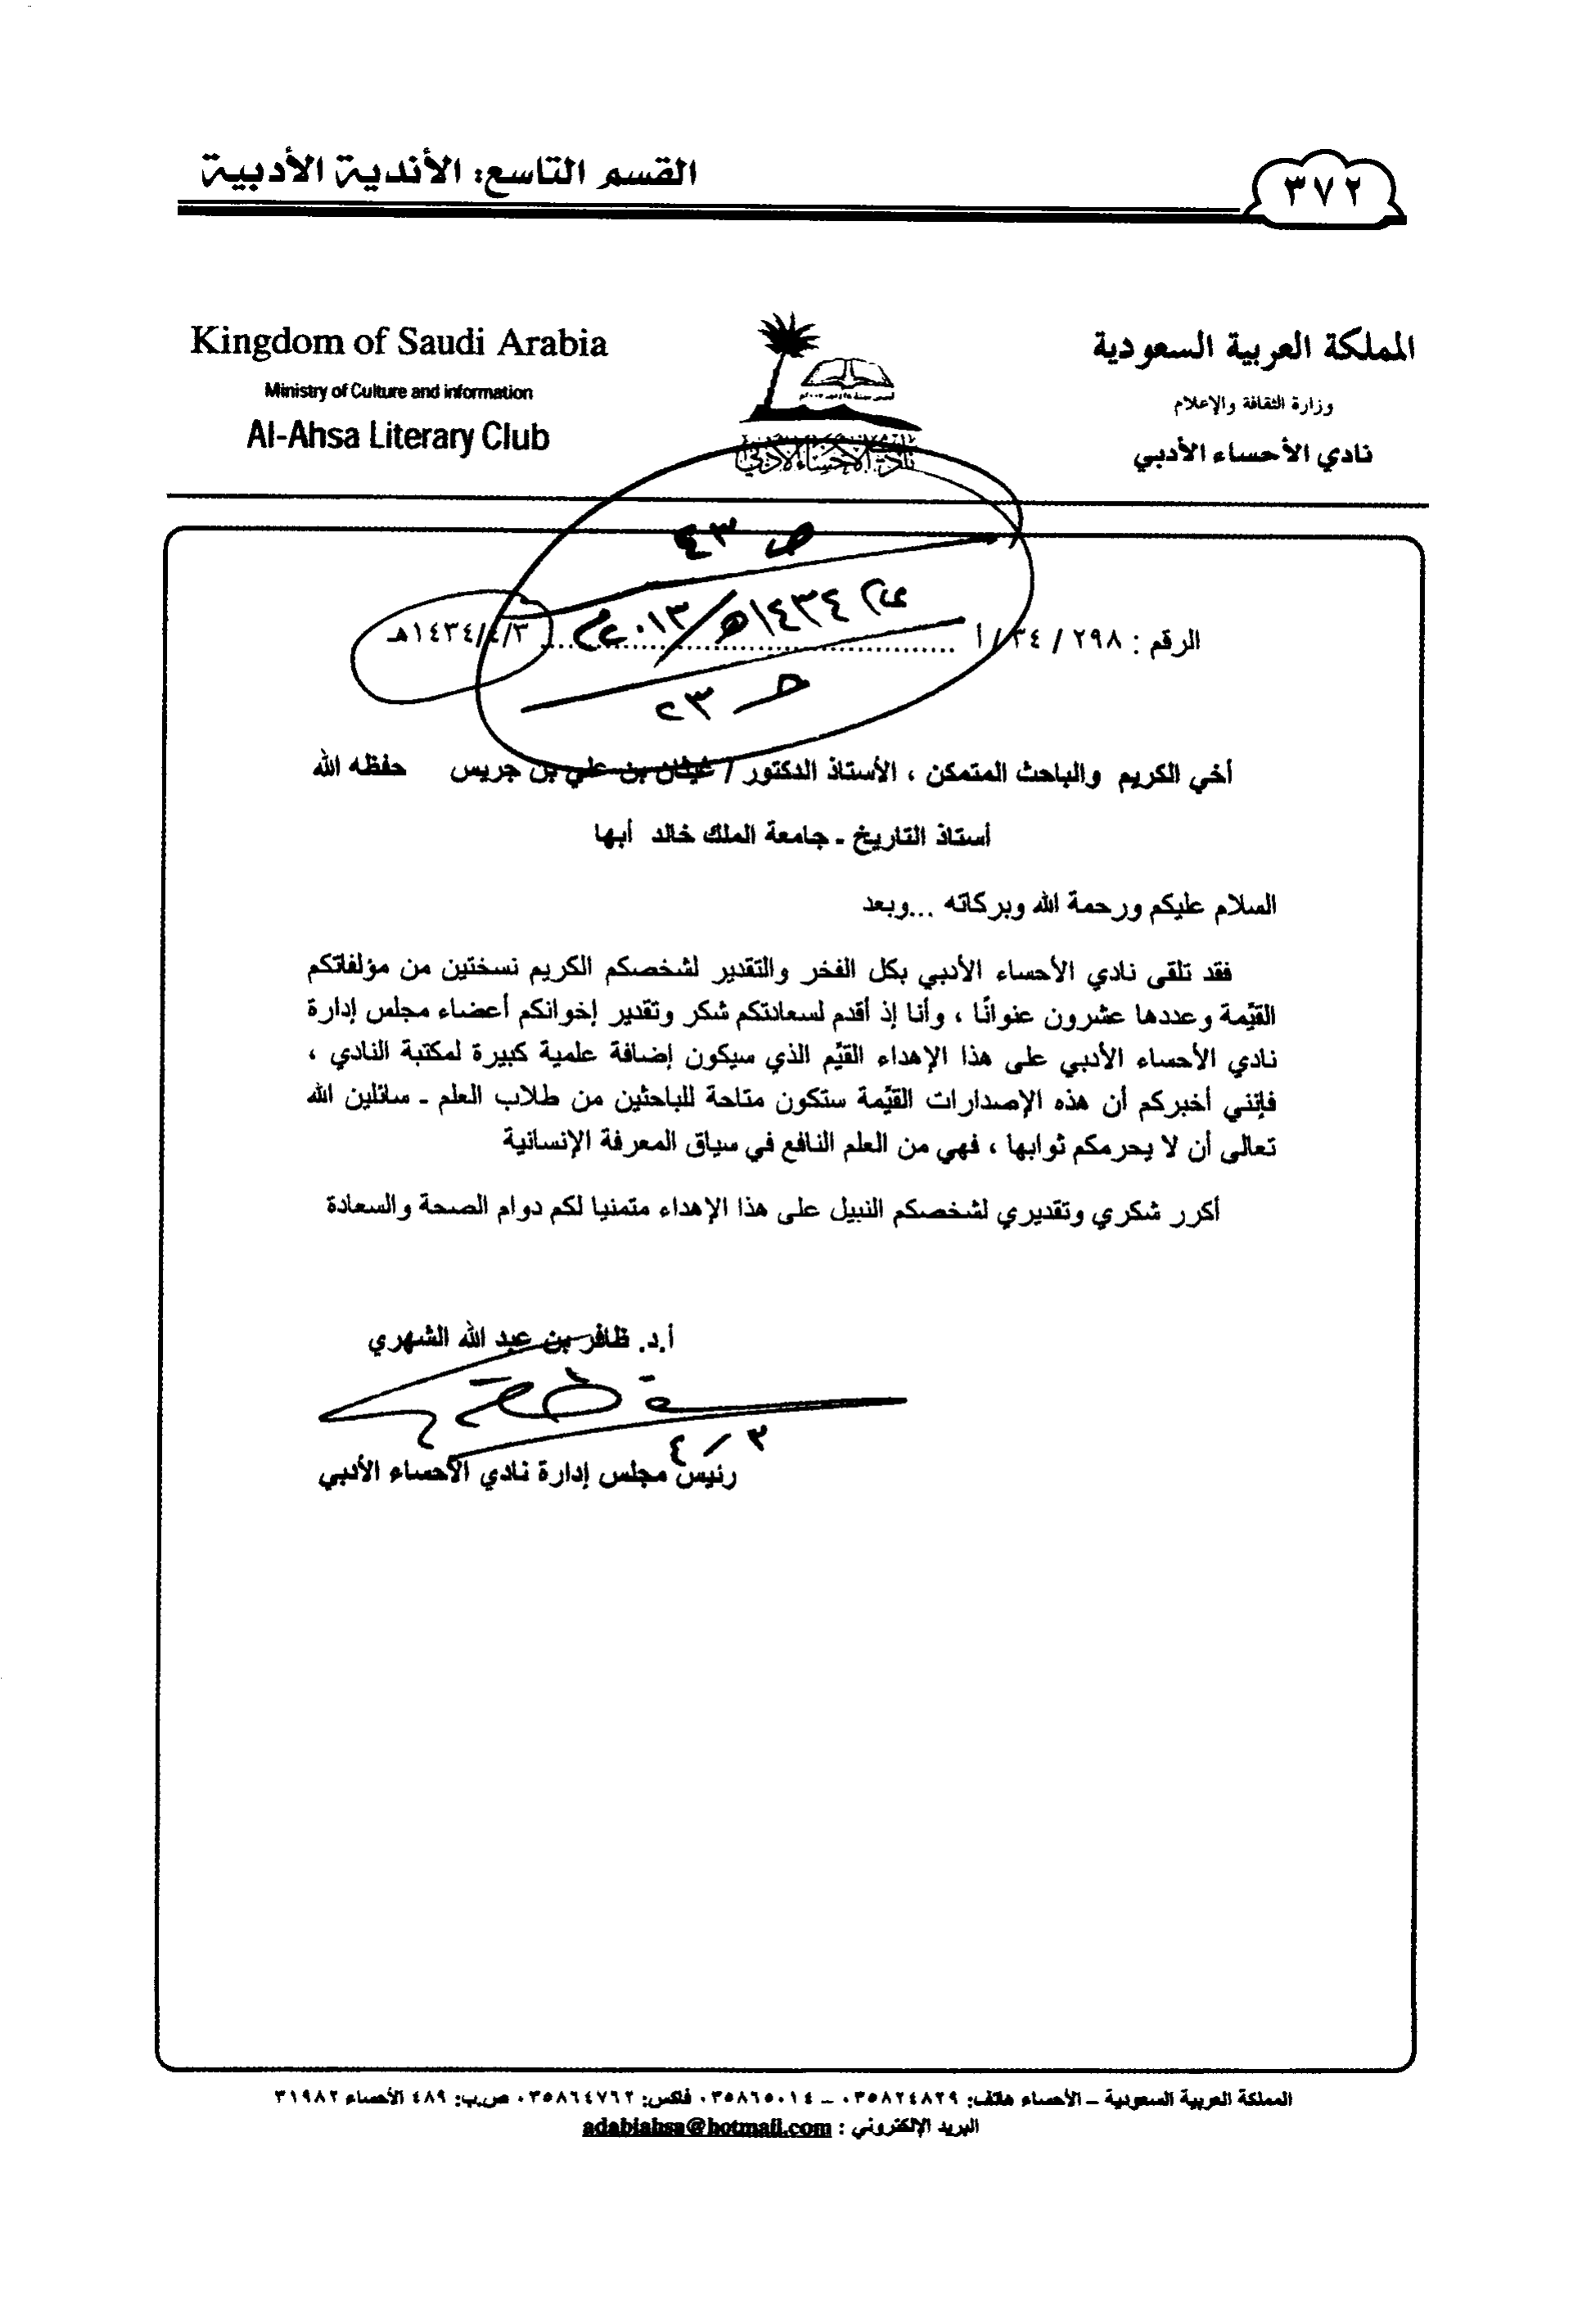 القسم التاسع: الأندية الأدبية
٣٧٢
المملكة العربية السعودية
وزارة الثقافة والإعلام
نادي الأحساء الأدبي
Kingdom of Saudi Arabia
Ministry of Culture and information
Al-Ahsa Literary Club
نادي الأحساء الأدبي
ص ٤٣
١٤٣٤هـ/٢٠١٣م
حـ ٢٣
الرقم : ٢٩٨ / ٣٤ / أ ٣/٤/١٤٣٤هـ
أخي الكريم والباحث المتمكن ، الأستاذ الدكتور / غيثان بن علي بن جريس حفظه الله
أستاذ التاريخ ـ جامعة الملك خالد أبها
السلام عليكم ورحمة الله وبركاته ...وبعد
فقد تلقى نادي الأحساء الأدبي بكل الفخر والتقدير لشخصكم الكريم نسختين من مؤلفاتكم
القيّمة وعددها عشرون عنوانًا ، وأنا إذ أقدم لسعادتكم شكر وتقدير إخوانكم أعضاء مجلس إدارة
نادي الأحساء الأدبي على هذا الإهداء القيّم الذي سيكون إضافة علمية كبيرة لمكتبة النادي ،
فإنني أخبركم أن هذه الإصدارات القيّمة ستكون متاحة للباحثين من طلاب العلم ـ سائلين الله
تعالى أن لا يحرمكم ثوابها ، فهي من العلم النافع في سياق المعرفة الإنسانية
أكرر شكري وتقديري لشخصكم النبيل على هذا الإهداء متمنيا لكم دوام الصحة والسعادة
أ.د. ظافر بن عبد الله الشهري
٣ / ٤
رئيس مجلس إدارة نادي الأحساء الأدبي
المملكة العربية السعودية – الأحساء هاتف: ٠٣٥٨٢٤٨٢٩ – ٠٣٥٨٦٥٠١٤ فاكس: ٠٣٥٨٦٤٧٦٢ ص.ب: ٤٨٩ الأحساء ٣١٩٨٢
البريد الإلكتروني : adabiahsa@hotmail.com